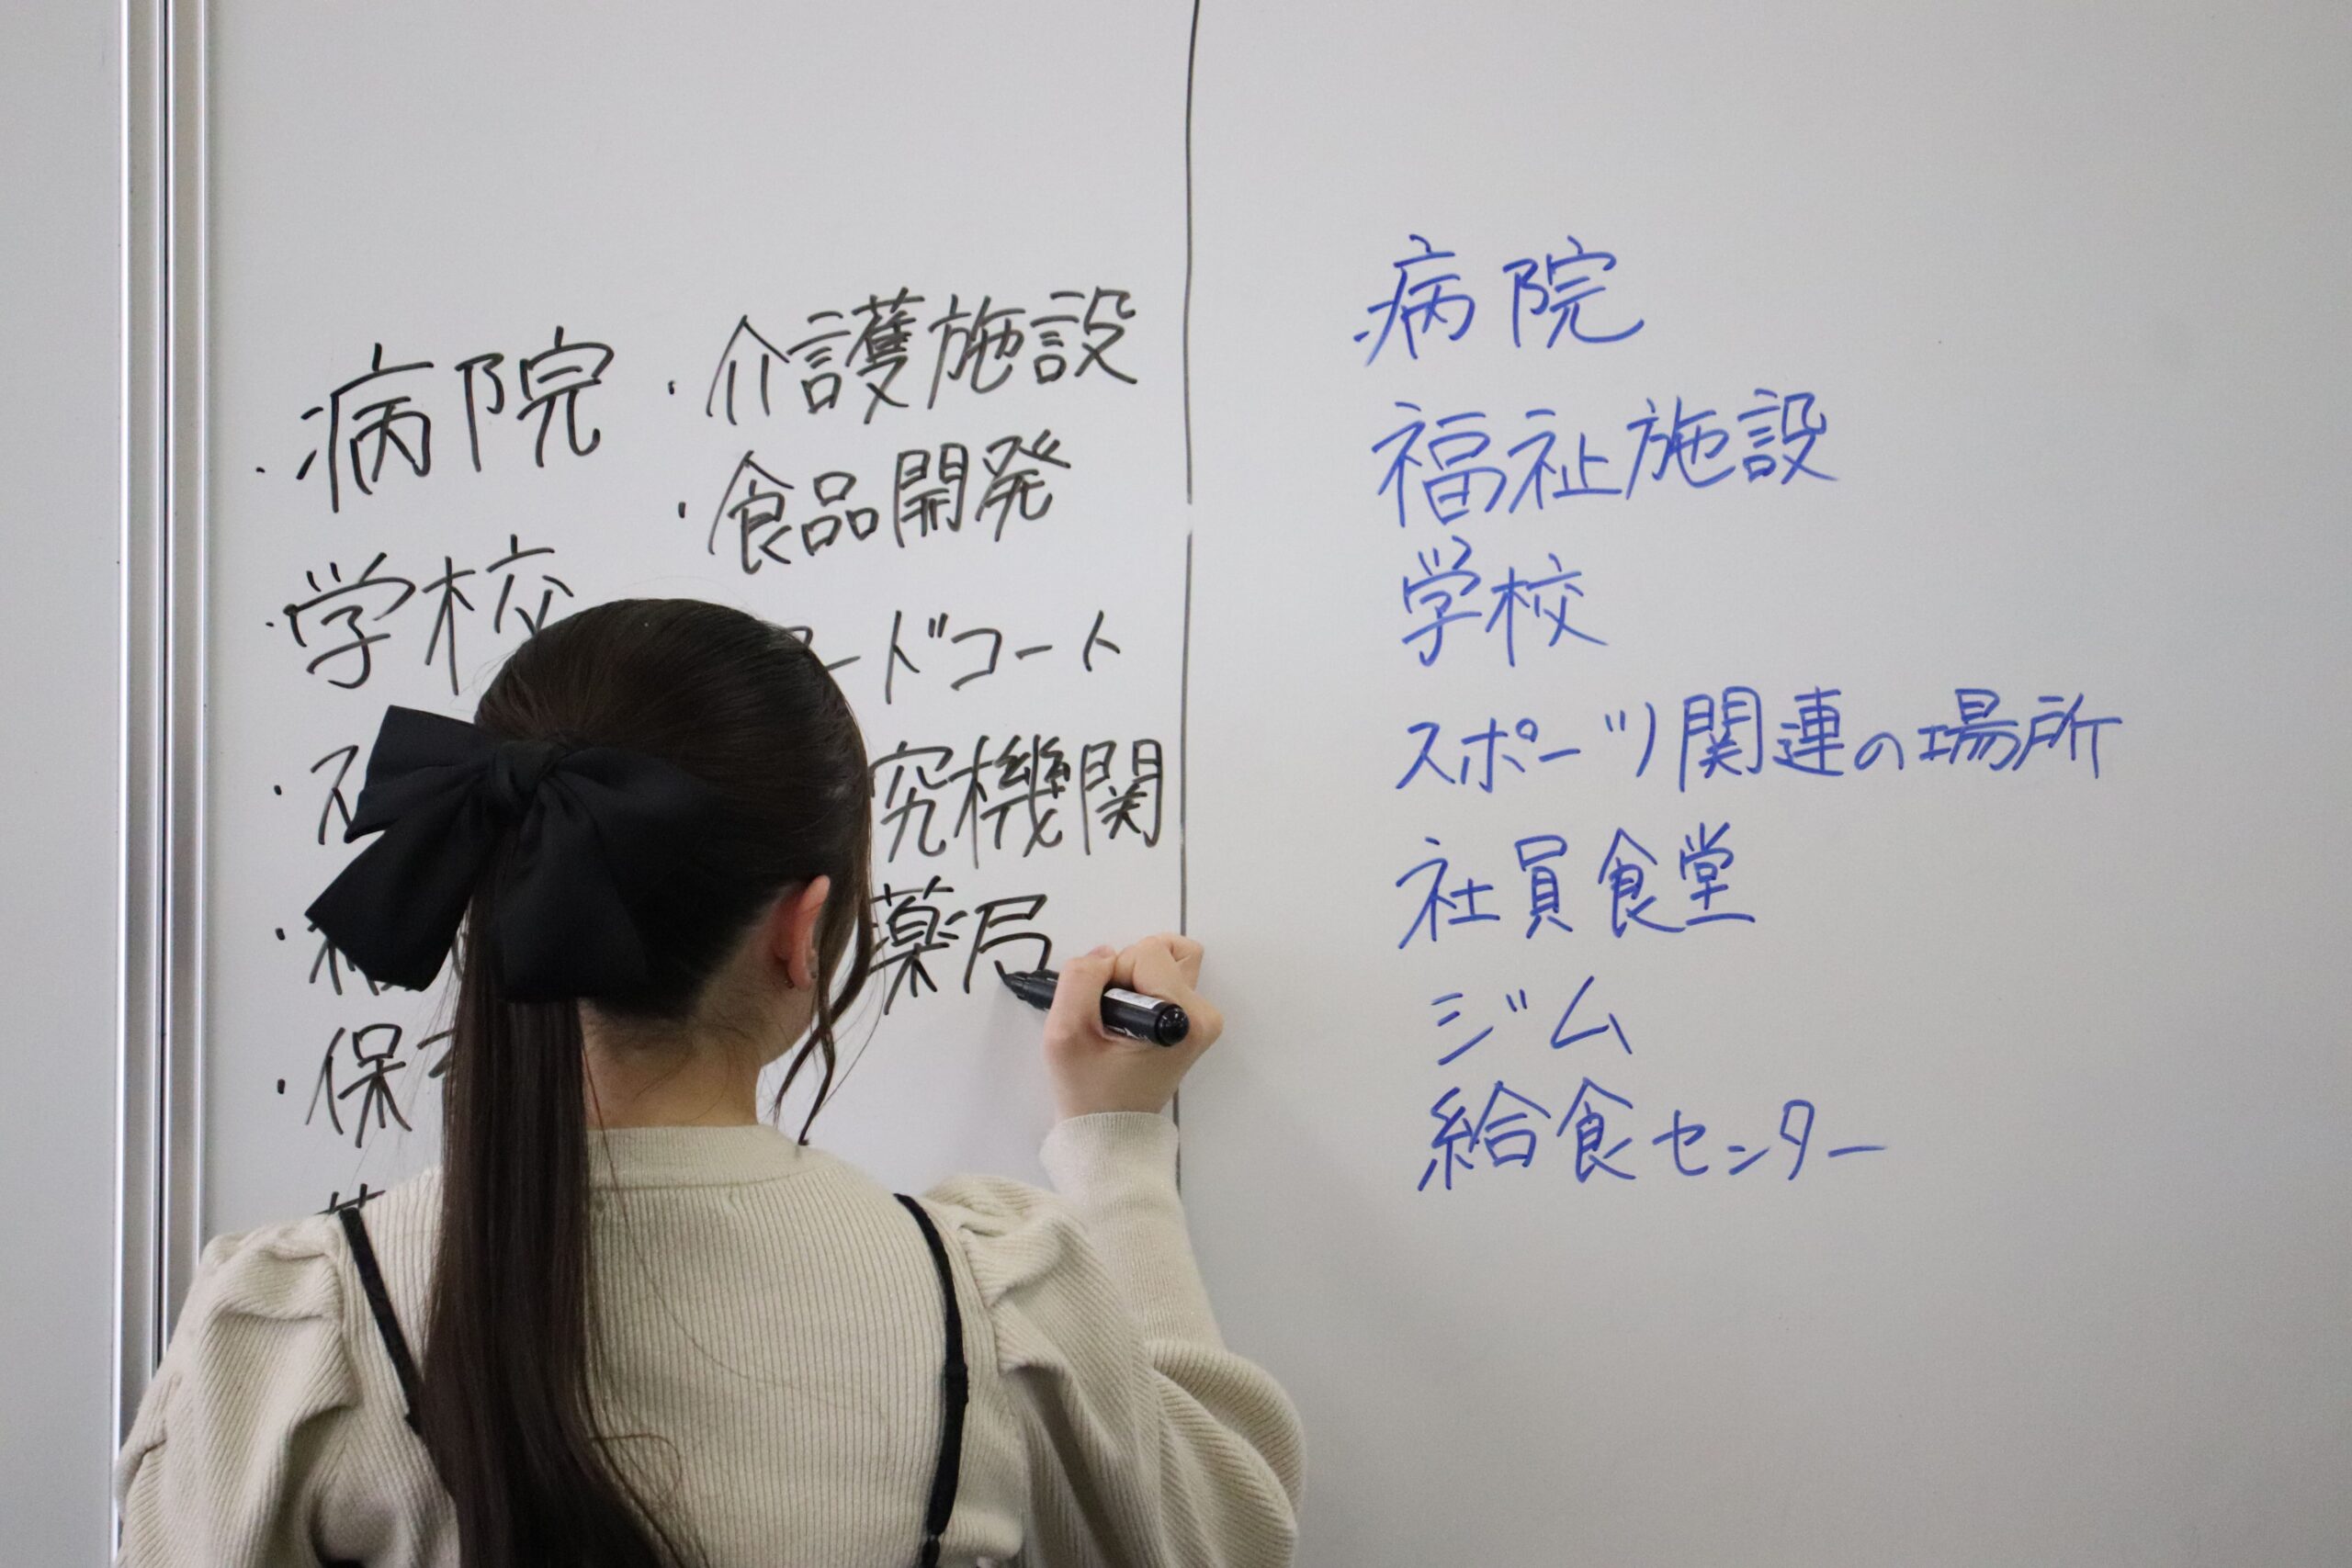 ・病院
・学校
・ス
・保
・介護施設
・食品開発
ードコート
究機関
薬局
・病院
福祉施設
学校
スポーツ関連の場所
社員食堂
ジム
給食センター